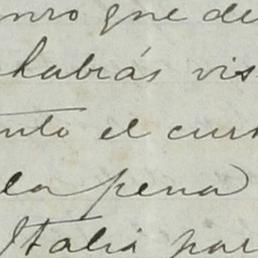 que de
habrás vis
nto el curs
la pena
Italia par